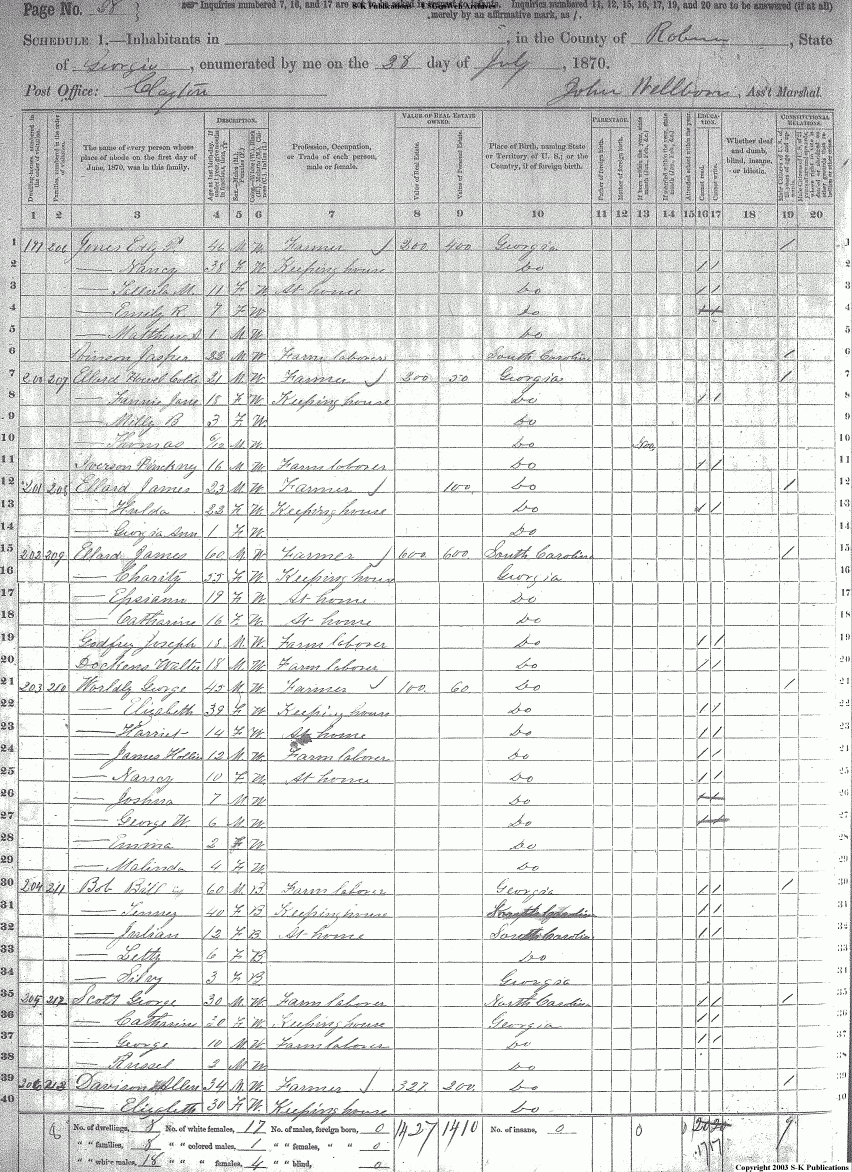 Page No. 28
Inquiries numbered 7, 16, and 17 are not to be asked in respect to infants. Inquiries numbered 11, 12, 15, 16, 17, 19, and 20 are to be answered (if at all)
merely by an affirmative mark, as /.
SCHEDULE 1.—Inhabitants in , in the County of Rabun, State
of Georgia, enumerated by me on the 28 day of July, 1870.
Post Office: Clayton John Wellborn, Ass't Marshal.
DESCRIPTION. VALUE OF REAL ESTATE OWNED. PARENTAGE. EDUCATION. CONSTITUTIONAL RELATIONS.
The name of every person whose place of abode on the first day of June, 1870, was in this family. Profession, Occupation, or Trade of each person, male or female. Value of Real Estate. Value of Personal Estate. Place of Birth, naming State or Territory of U. S.; or the Country, if of foreign birth. Father of foreign birth. Mother of foreign birth. Attended school within the year. Cannot read. Cannot write. Whether deaf and dumb, blind, insane, or idiotic.
1 2 3 4 5 6 7 8 9 10 11 12 13 14 15 16 17 18 19 20
1 206 Jones 46 M W Farmer 200 400 Georgia / 1
2 — Nancy 38 F W Keeping house Do / / 2
3 — M 11 F W At home Do / / 3
4 — Emily R 7 F W Do 4
5 — Matthew 1 M W Do 5
6 Jasper 22 M W Farm laborer South Carolina / 6
7 207 Ellard 21 M W Farmer 200 50 Georgia / 7
8 — Fannie Jane 18 F W Keeping house Do / / 8
9 — Milly B 3 F W Do 9
10 — Thomas M W Do 10
11 Iverson Pinckney 16 M W Farm laborer Do / / 11
12 201 208 Ellard James 23 M W Farmer 100 Do / 12
13 — Hulda 22 F W Keeping house Do / / 13
14 — Georgia Ann 1 F W Do 14
15 202 209 Ellard James 60 M W Farmer 600 600 South Carolina / 15
16 — Charity 55 F W Keeping house Georgia 16
17 — 19 F W At home Do 17
18 — Catharine 16 F W At home Do 18
19 Godfrey Joseph 18 M W Farm laborer Do / / 19
20 Dockens Walter 18 M W Farm laborer Do / / 20
21 203 210 Worldly George 45 M W Farmer 100 60 Do / 21
22 — Elizabeth 39 F W Keeping house Do / / 22
23 — Harriet 14 F W At home Do / / 23
24 — James 12 M W Farm laborer Do / / 24
25 — Nancy 10 F W At home Do / / 25
26 — Joshua 7 M W Do 26
27 — George W. 6 M W Do 27
28 — Emma 2 F W Do 28
29 — Malinda 4 F W Do 29
30 204 211 Bob Bill 60 M B Farm laborer Georgia / / / 30
31 — Jenney 40 F B Keeping house South Carolina / / 31
32 — Julian 12 F B At home South Carolina / / 32
33 — Letty 6 F B Do 33
34 — Silvy 3 F B Georgia 34
35 205 212 Scott George 30 M W Farm laborer North Carolina / / / 35
36 — Catharine 30 F W Keeping house Georgia / / 36
37 — George 10 M W Farm laborer Do / / 37
38 — Russel 2 M W Do 38
39 206 213 Davison Allen 34 M W Farmer 327 200 Do / 39
40 — Elizabeth 30 F W Keeping house Do 40
No. of dwellings, 8 No. of white females, 17 No. of males, foreign born, 0 1427 1410 No. of insane, 0 0 0 2020 9
" " families, 8 " " colored males, 1 " " females, " " 0 1717
" " white males, 18 " " " females, 4 " " blind, 0
Copyright 2003 S-K Publications